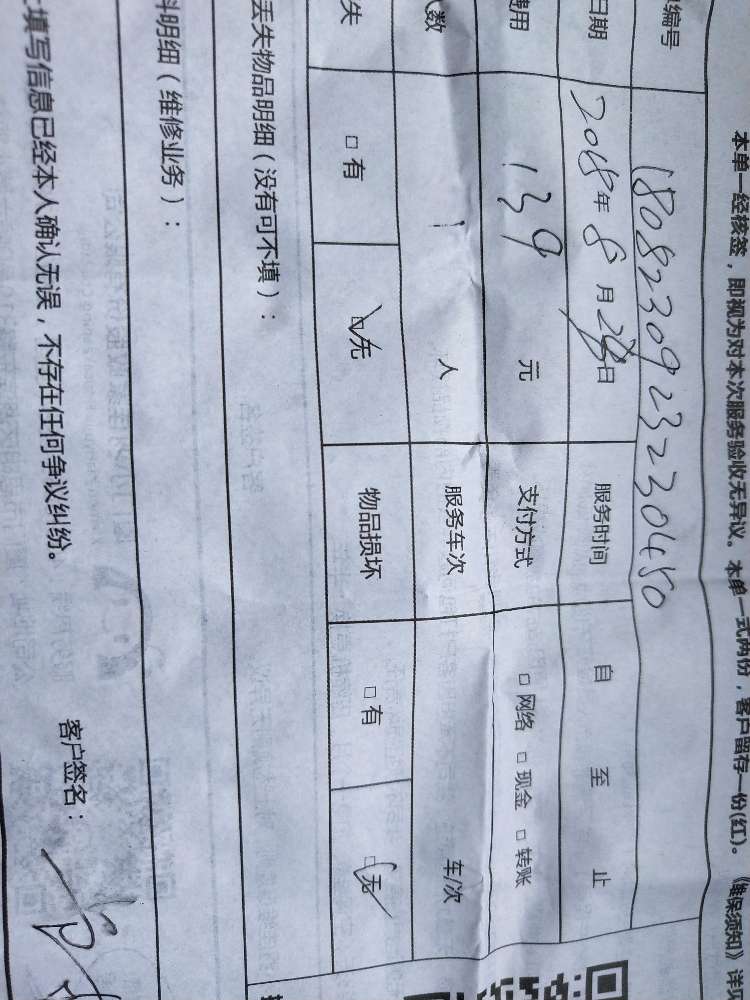 本单一经核签，即视为对本次服务验收无异议。本单一式两份，客户留存一份(红)。《维保须知》详见
编号 180823092323230450
日期 2018年8月日 服务时间 自 至 止
费用 139元 支付方式 □网络 □现金 □转账
人数 1 人 服务车次 车/次
失 □有 □无 物品损坏 □有 □无
丢失物品明细（没有可不填）：
料明细（维修业务）：
上填写信息已经本人确认无误，不存在任何争议纠纷。
客户签名：